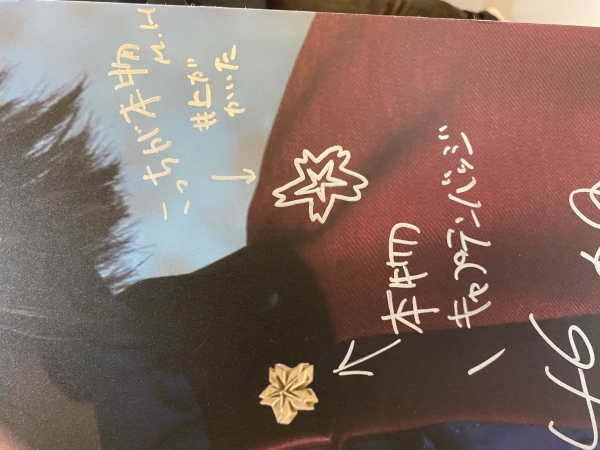 こっちが本物
M.H
井上が
かいた
↓
本物
キャプテンバッジ
46